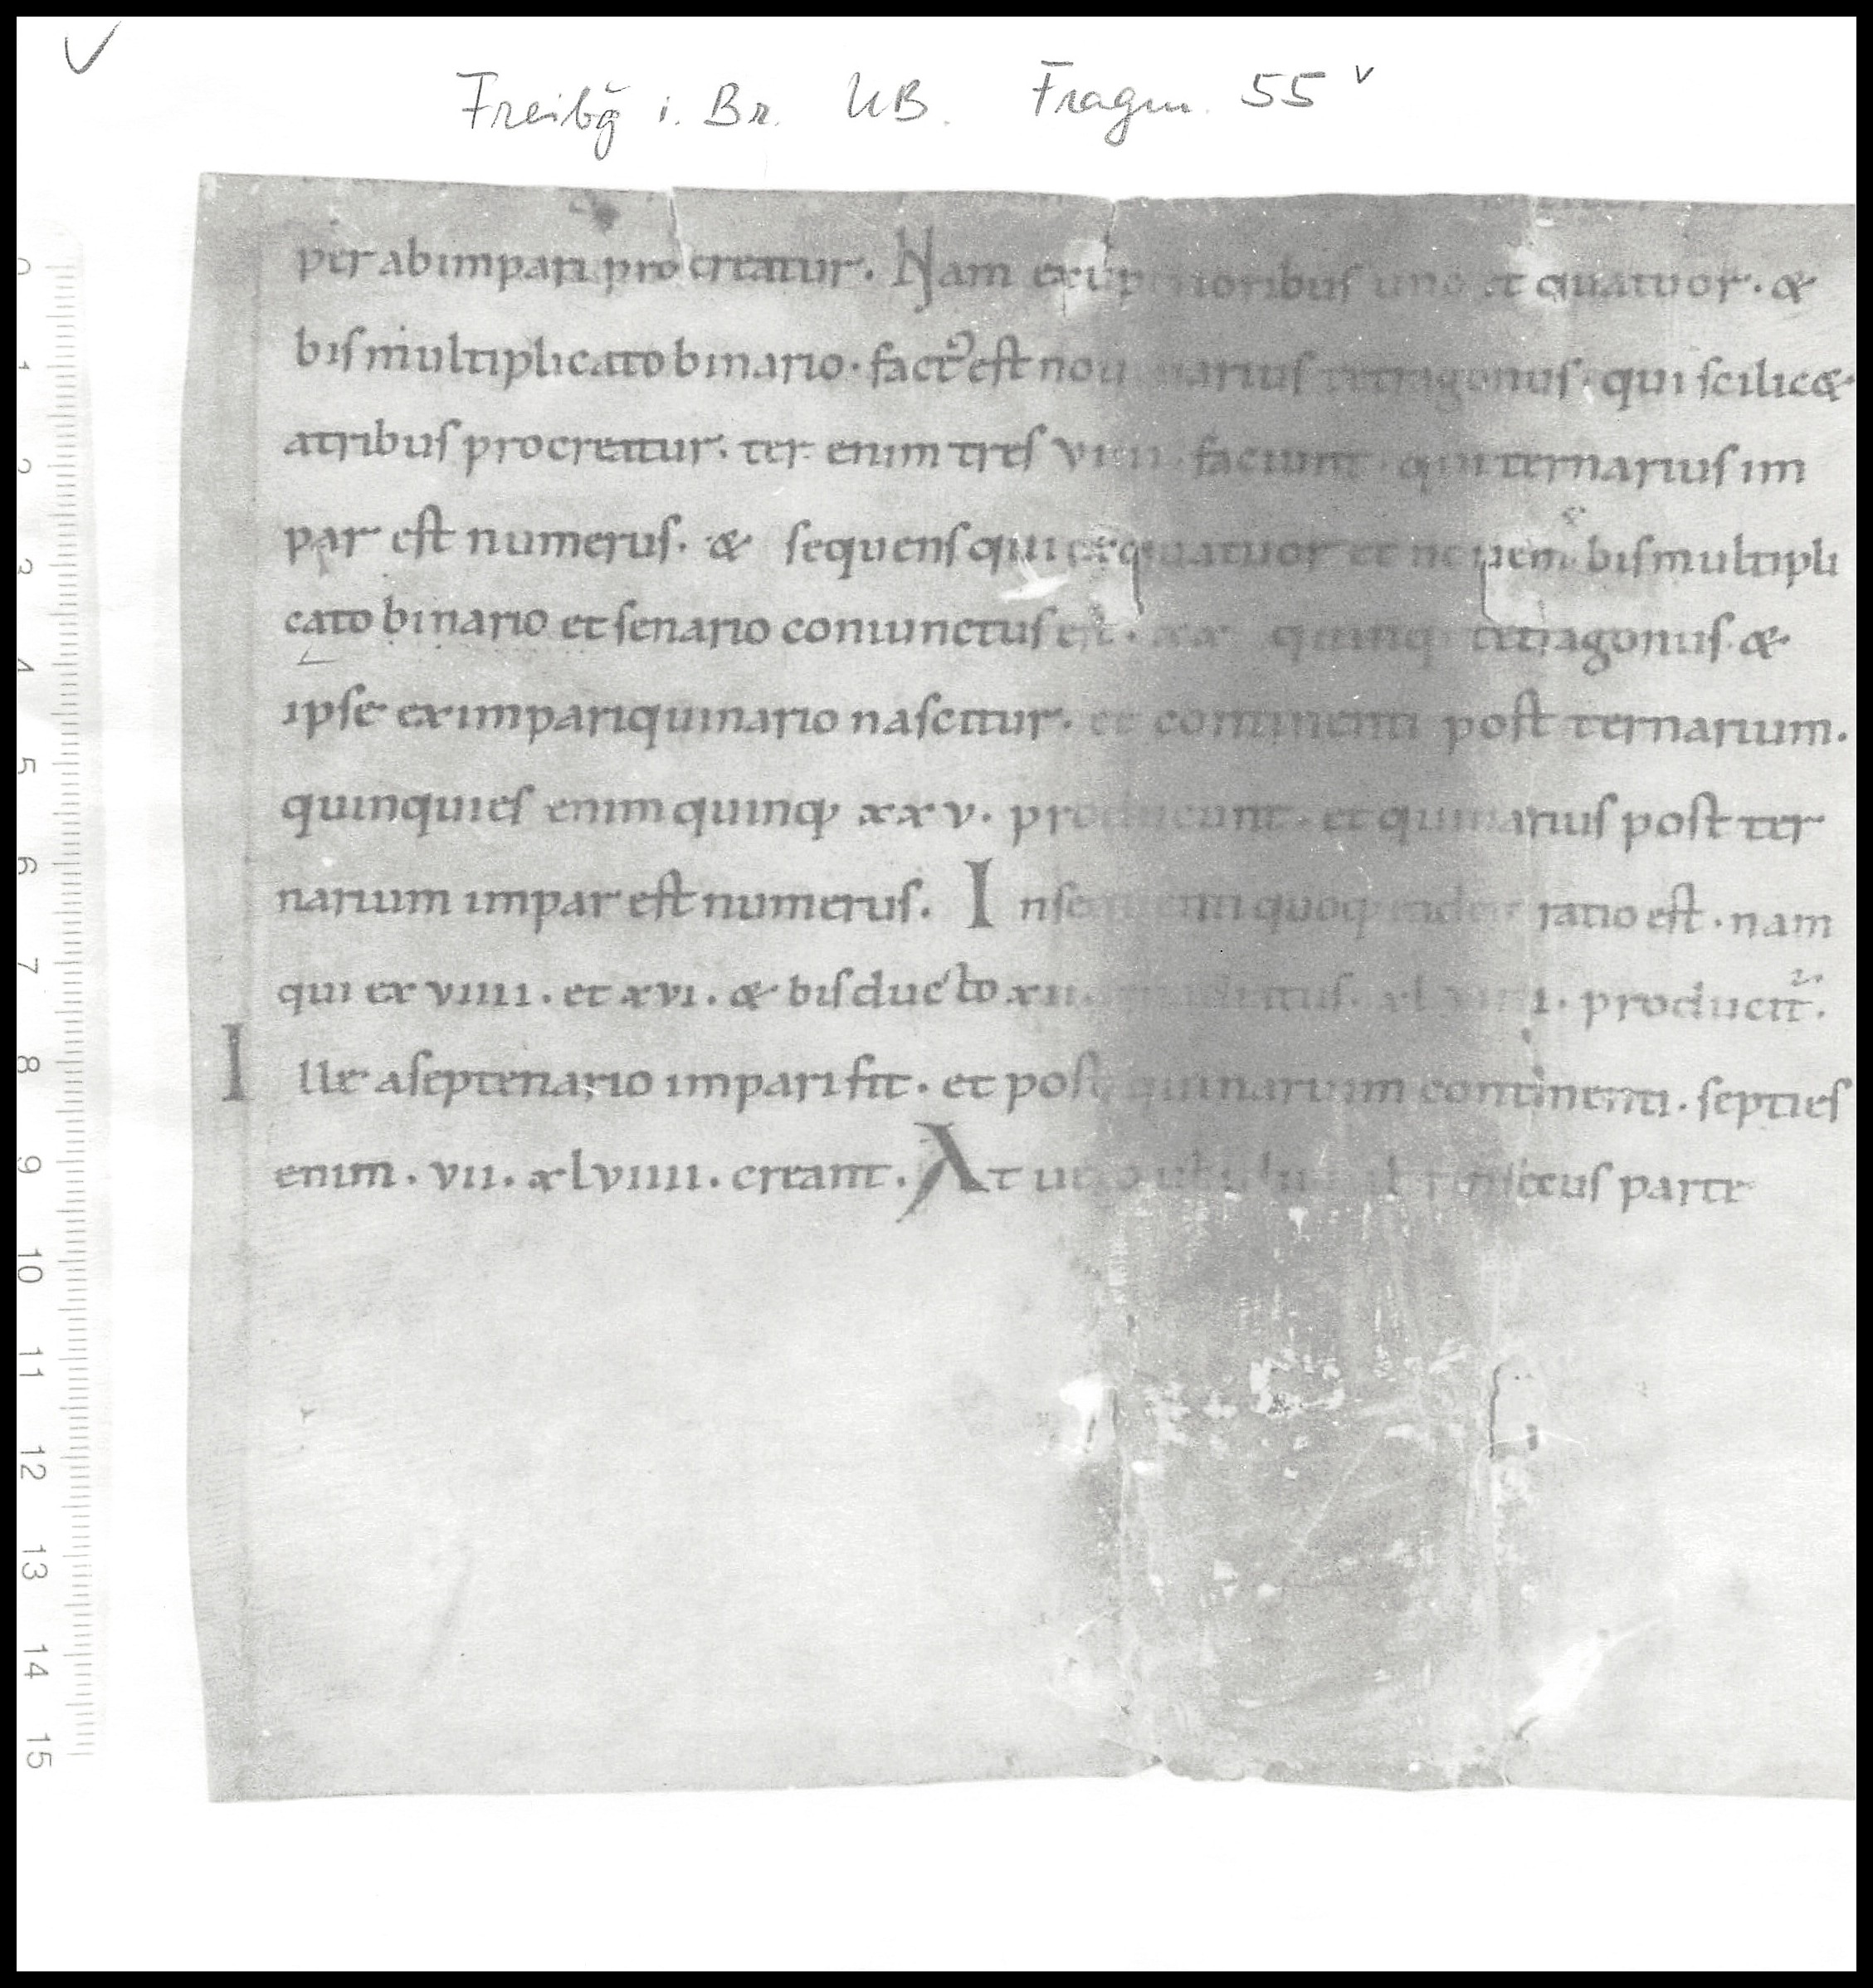 V
Freibg̃ i. Br. UB. Fragm. 55 v
per ab impari pro creatur. Nam ex up rioribus uno et quatuor. &
bis multiplicato binario. fact᾿ est nou narius tetragonus. qui scilic&
a tribus procreatur. ter enim tres viiii. faciunt. qui ternarius im
par est numerus. & sequens qui ex quatuor et novem bis multipli
cato binario et senario coniunctus est. xx quinq tetragonus. &
ipse ex impari quinario nascitur. et continenti post ternarium.
quinquies enim quinq xxv. producunt. et quinarius post ter
narium impar est numerus. In sequenti quoq eadem ratio est. nam
qui ex viiii. et xvi. & bis ducto xii. xlviiii. producit᷑.
Ille a septenario impari fit. et post quinarium continenti. septies
enim. vii. xlviiii. creant. At parte
0
1
2
3
4
5
6
7
8
9
10
11
12
13
14
15